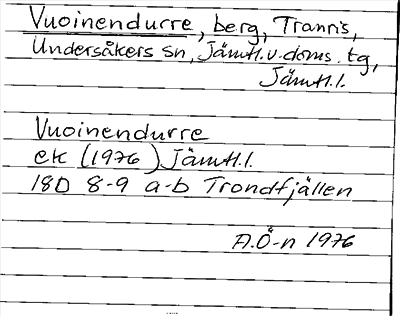 Vuoinendurre, berg, Tranris,
Undersåkers sn, Jämtl.v.doms.tg,
Jämtl.l.
Vuoinendurre
ek (1976) Jämtl.l.
18D 8-9 a-b Trondfjällen
A.Ö-n 1976